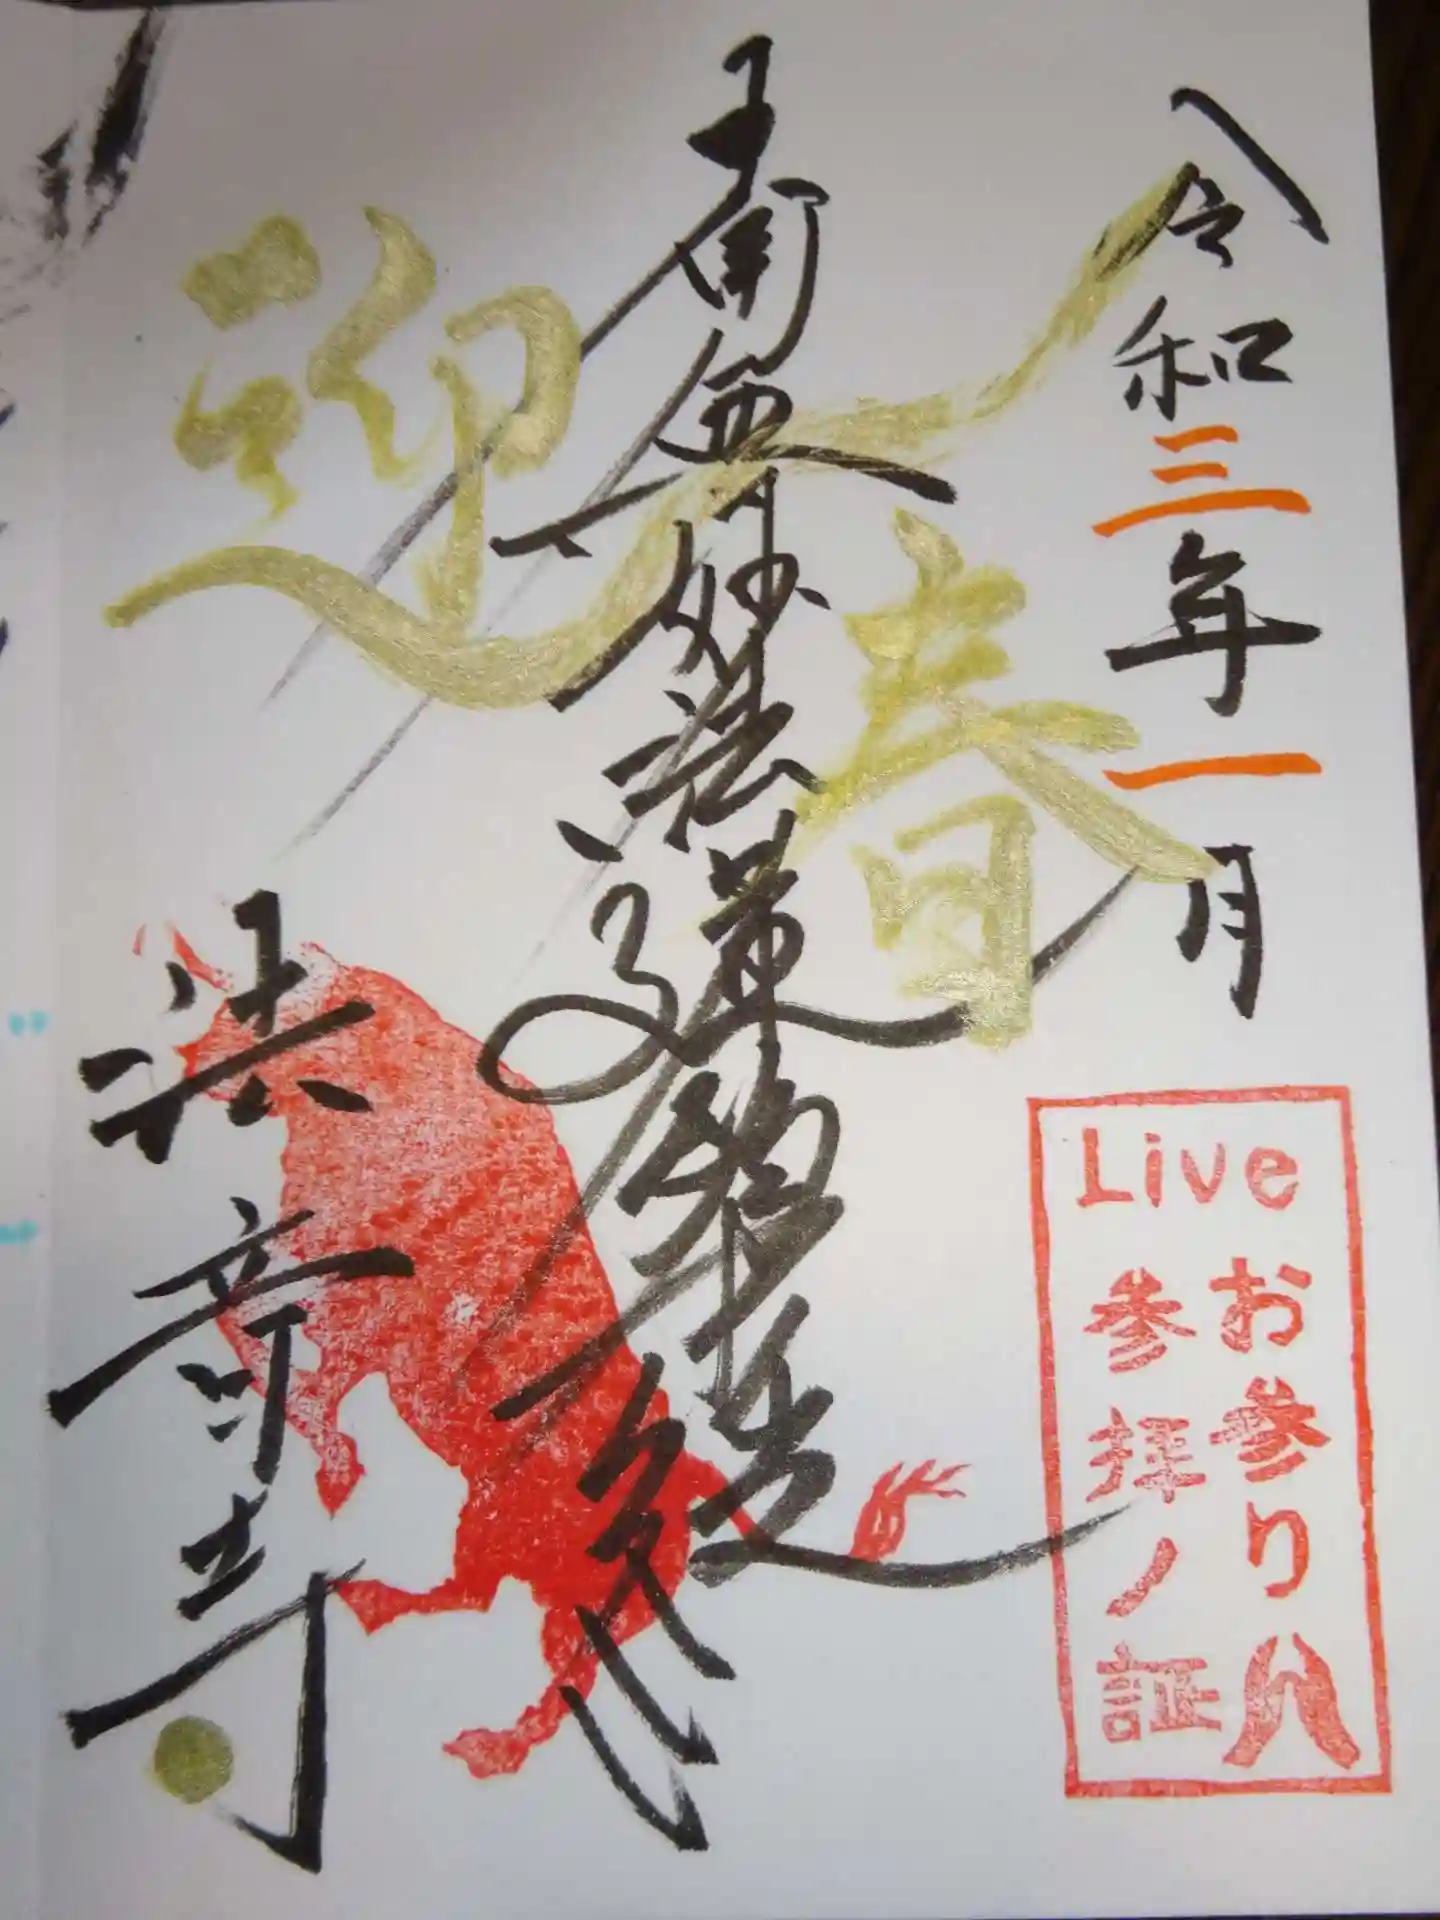 令和三年一月
迎春
南無妙法蓮華経
法竒寺
Live
お参り
参拝ノ証